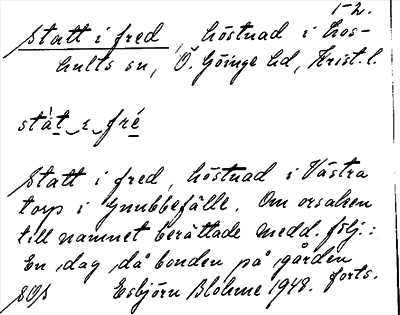 1-2.
Statt i fred, höstnad i Los-
hults sn, Ö. Göinge hd, Krist. l.
stàt ‿ ı ‿ fré
Statt i fred, höstnad i Västra
torp i Gnubbefälle. Om orsaken
till namnet berättade medd. följ.:
En dag då bonden på gården
Esbjörn Blohmé 1948. forts.